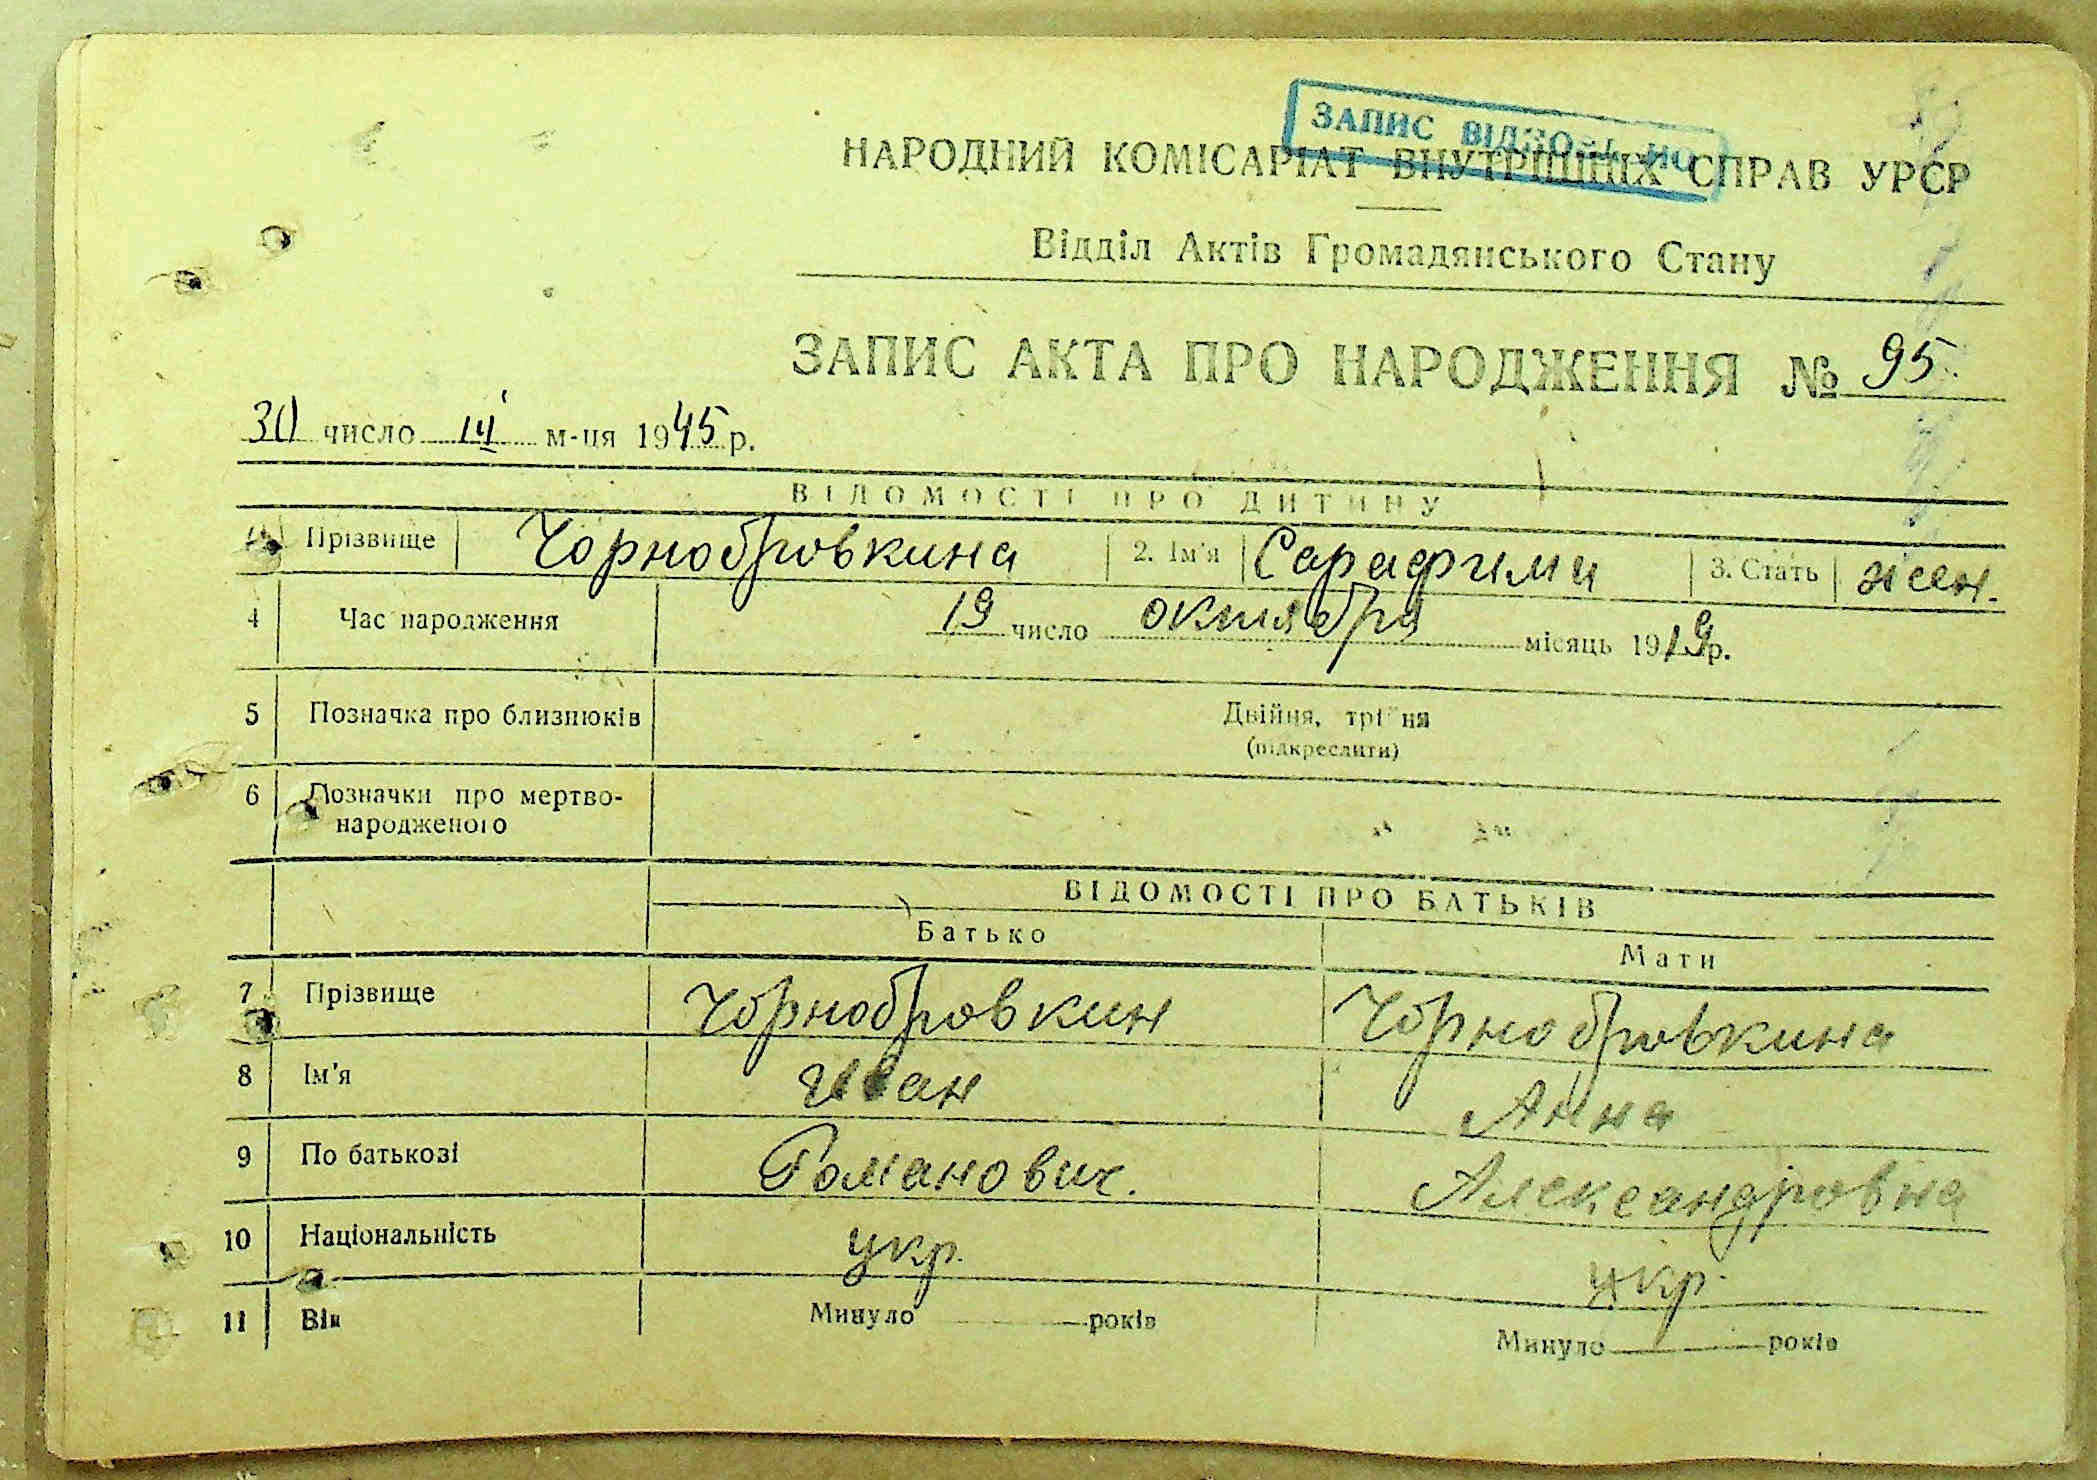 ЗАПИС ВІДНОВЛЕНО
НАРОДНИЙ КОМІСАРІАТ ВНУТРІШНІХ СПРАВ УРСР
Відділ Актів Громадянського Стану
ЗАПИС АКТА ПРО НАРОДЖЕННЯ № 95.
30 число III м-ця 1945 р.
ВІДОМОСТІ ПРО ДИТИНУ
Прізвище Чорнобровкина 2. Ім'я Сарафими 3. Стать жен.
4 Час народження 19 число октября місяць 1919 р.
5 Позначка про близнюків Двійня, трійня
(підкреслити)
6 Позначки про мертво-
народженого
ВІДОМОСТІ ПРО БАТЬКІВ
Батько Мати
7 Прізвище Чорнобровкин Чорнобровкина
8 Ім'я Иван Анна
9 По батькові Романович. Александровна
10 Національність укр. укр.
11 Вік Минуло років Минуло років